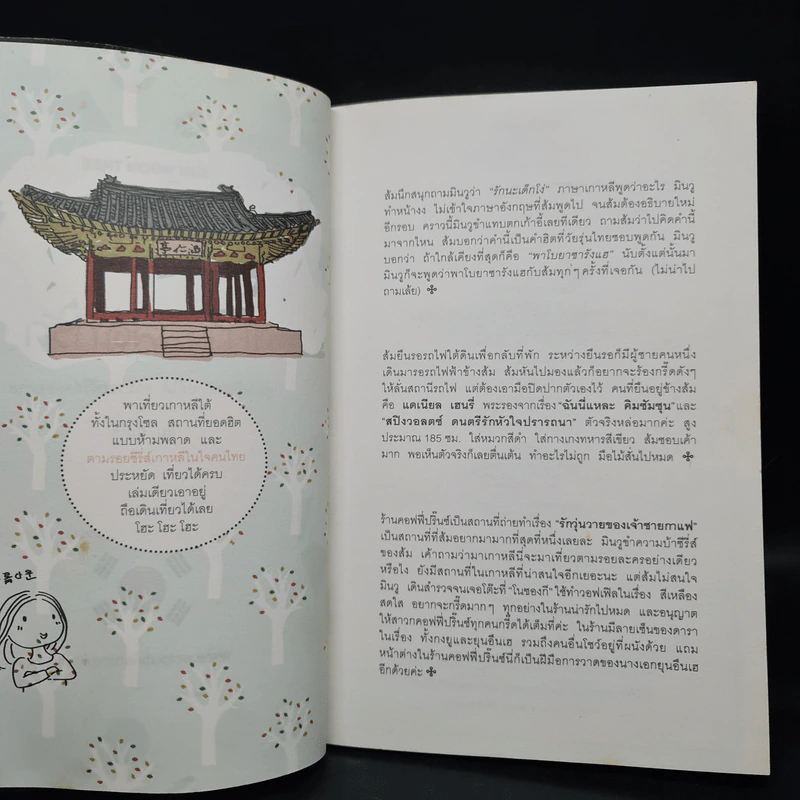 พาเที่ยวเกาหลีใต้
ทั้งในกรุงโซล สถานที่ยอดฮิต
แบบห้ามพลาด และ
ตามรอยซีรีส์เกาหลีในใจคนไทย
ประหยัด เที่ยวได้ครบ
เล่มเดียวเอาอยู่
ถือเดินเที่ยวได้เลย
โฮะ โฮะ โฮะ
ส้มนึกสนุกถามมินวูว่า "รักนะเด็กโง่" ภาษาเกาหลีพูดว่าอะไร มินวู
ทำหน้างง ไม่เข้าใจภาษาอังกฤษที่ส้มพูดไป จนส้มต้องอธิบายใหม่
อีกรอบ คราวนี้มินวูขำแทบตกเก้าอี้เลยทีเดียว ถามส้มว่าไปคิดคำนี้
มาจากไหน ส้มบอกว่าคำนี้เป็นคำฮิตที่วัยรุ่นไทยชอบพูดกัน มินวู
บอกว่า ถ้าใกล้เคียงที่สุดก็คือ "พาโบยาซารังแฮ" นับตั้งแต่นั้นมา
มินวูก็จะพูดว่าพาโบยาซารังแฮกับส้มทุกๆ ครั้งที่เจอกัน (ไม่น่าไป
ถามเล้ย)
ส้มยืนรอรถไฟใต้ดินเพื่อกลับที่พัก ระหว่างยืนรอก็มีผู้ชายคนหนึ่ง
เดินมารอรถไฟฟ้าข้างส้ม ส้มหันไปมองแล้วก็อยากจะร้องกรี๊ดดังๆ
ให้ลั่นสถานีรถไฟ แต่ต้องเอามือปิดปากตัวเองไว้ คนที่ยืนอยู่ข้างส้ม
คือ แดเนียล เฮนรี่ พระรองจากเรื่อง "ฉันนี่แหละ คิมซัมซุน" และ
"สปริงวอลตซ์ ดนตรีรักหัวใจปรารถนา" ตัวจริงหล่อมากค่ะ สูง
ประมาณ 185 ซม. ใส่หมวกสีดำ ใส่กางเกงทหารสีเขียว ส้มชอบเค้า
มาก พอเห็นตัวจริงก็เลยตื่นเต้น ทำอะไรไม่ถูก มือไม้สั่นไปหมด
ร้านคอฟฟี่ปริ๊นซ์เป็นสถานที่ถ่ายทำเรื่อง "รักวุ่นวายของเจ้าชายกาแฟ"
เป็นสถานที่ที่ส้มอยากมามากที่สุดที่หนึ่งเลยละ มินวูขำความบ้าซีรีส์
ของส้ม เค้าถามว่ามาเกาหลีนี่จะมาเที่ยวตามรอยละครอย่างเดียว
หรือไง ยังมีสถานที่ในเกาหลีที่น่าสนใจอีกเยอะนะ แต่ส้มไม่สนใจ
มินวู เดินสำรวจจนเจอโต๊ะที่ "โนซองกี" ใช้ทำวอฟเฟิลในเรื่อง สีเหลือง
สดใส อยากจะกรี๊ดมากๆ ทุกอย่างในร้านน่ารักไปหมด และอนุญาต
ให้สาวกคอฟฟี่ปริ๊นซ์ทุกคนกรี๊ดได้เต็มที่ค่ะ ในร้านมีลายเซ็นของดารา
ในเรื่อง ทั้งกงยูและยุนอึนเฮ รวมถึงคนอื่นโชว์อยู่ที่ผนังด้วย แถม
หน้าต่างในร้านคอฟฟี่ปริ๊นซ์นี่ก็เป็นฝีมือการวาดของนางเอกยุนอึนเฮ
อีกด้วยค่ะ